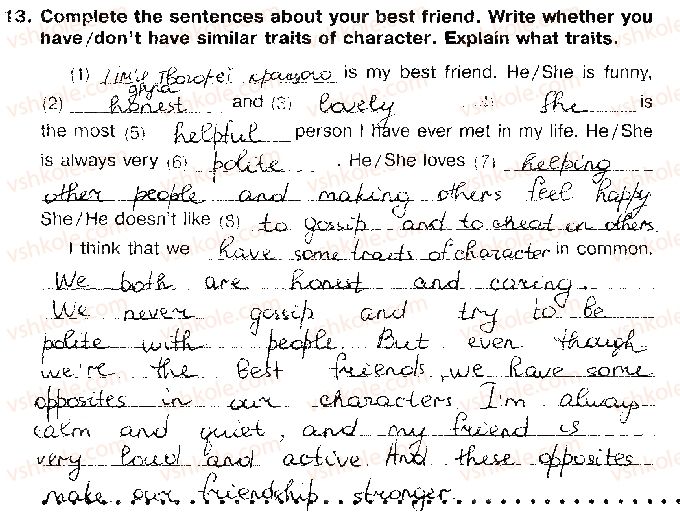 13. Complete the sentences about your best friend. Write whether you
have/don't have similar traits of character. Explain what traits.
(1) Ім'я твоєї кращого друга is my best friend. He/She is funny,
(2) honest and (3) lovely. (4) She is
the most (5) helpful person I have ever met in my life. He/She
is always very (6) polite. He/She loves (7) helping
other people and making others feel happy
She/He doesn't like (8) to gossip and to cheat on others
I think that we have some traits of character in common.
We both are honest and caring.
We never gossip and try to be
polite with people. But even though
we're the best friends, we have some
opposites in our characters I'm alway
calm and quiet, and my friend is
very loud and active. And these opposites
make our friendship stronger